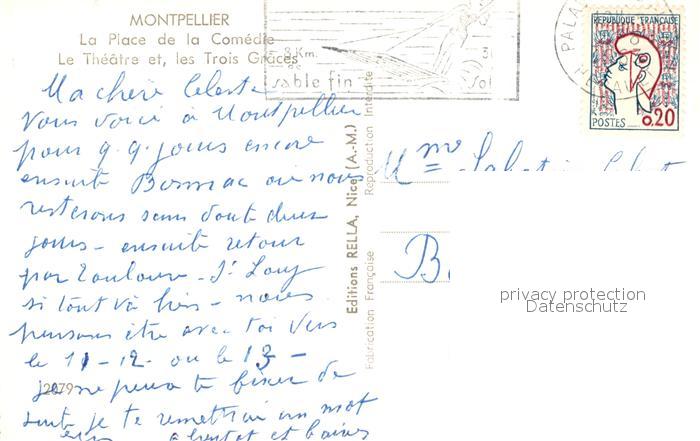 MONTPELLIER
La Place de la Comédie
Le Théâtre et, les Trois Grâces
8 Km.
de
sable fin
3
Sol
PALA
REPUBLIQUE FRANÇAISE
POSTES
0.20
Ma chère Céleste
Vous voici à Montpellier
pour q.q. jours encore
ensuite où nous
resterons sans doute deux
jours - ensuite retour
par Toulouse - St Louy
si tout va bien - nous
pensons être avec toi vers
le 11 - 12 - ou le 13 -
12079
je ne peux te fixer de
suite je te remettrai un mot
et baises
Editions RELLA, Nice (A.-M.)
Fabrication Française
Reproduction Interdite
Mme
B.
privacy protection
Datenschutz